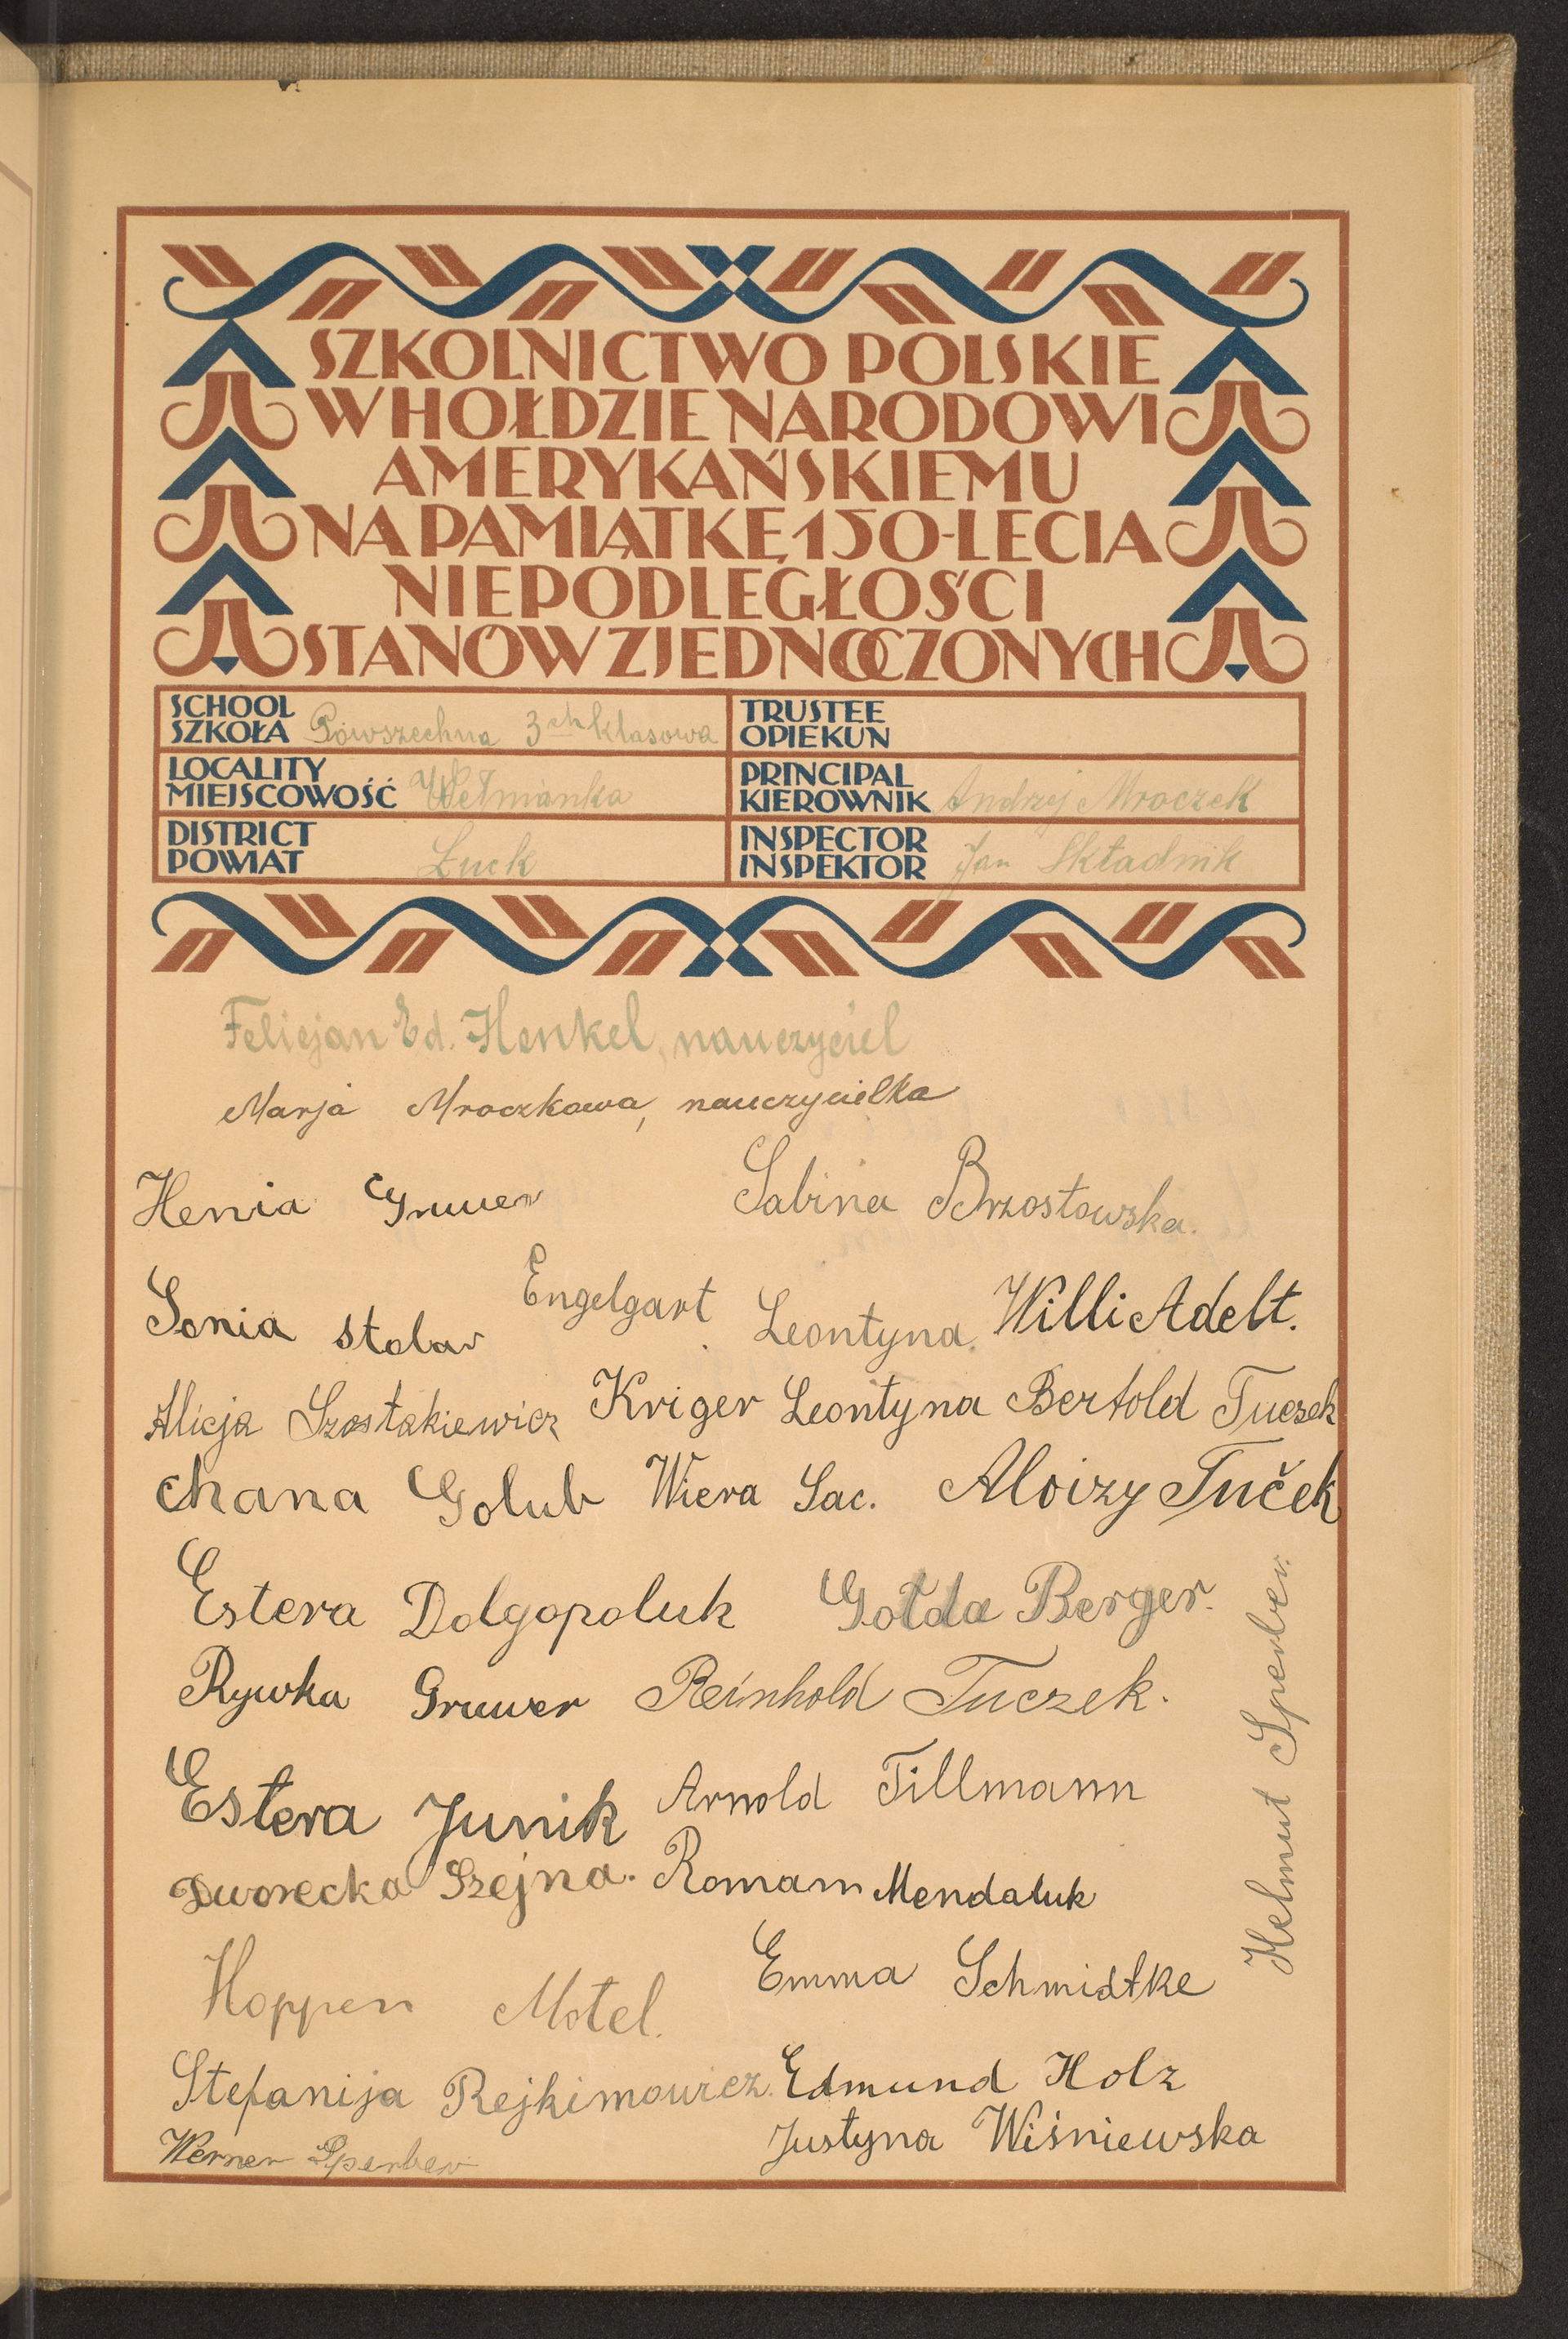 SZKOLNICTWO POLSKIE
W HOŁDZIE NARODOWI
AMERYKAŃSKIEMU
NA PAMIĄTKĘ 150-LECIA
NIEPODLEGŁOŚCI
STANÓW ZJEDNOCZONYCH
SCHOOL
SZKOŁA Powszechna 3ch klasowa
TRUSTEE
OPIEKUN
LOCALITY
MIEJSCOWOŚĆ Wełmianka
PRINCIPAL
KIEROWNIK Andrzej Mroczek
DISTRICT
POWIAT Łuck
INSPECTOR
INSPEKTOR Jan Składnik
Felicjan Ed. Henkel, nauczyciel
Marja Mroczkowa, nauczycielka
Henia Gruwer Sabina Brzostowska.
Sonia Stolar Engelgart Leontyna. Willi Adelt.
Alicja Szostakiewicz Kriger Leontyna Bertold Tuczek
Chana Golub Wiera Sac. Aloizy Tuček
Estera Dolgopoluk Gołda Berger.
Rywka Gruwer Reinhold Tuczek.
Estera Junik Arnold Tillmann
Dworecka Szejna. Roman Mendaluk
Hoppen Motel. Emma Schmidtke
Stefanija Rejkimowicz. Edmund Holz
Werner Sperber Justyna Wiśniewska
Helmut Sperber.